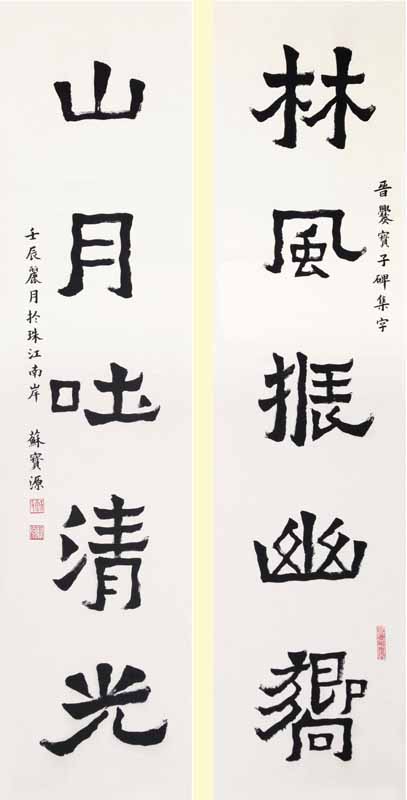 晉爨寶子碑集字
林風振幽嚮
山月吐清光
壬辰麗月於珠江南岸 蘇寶源